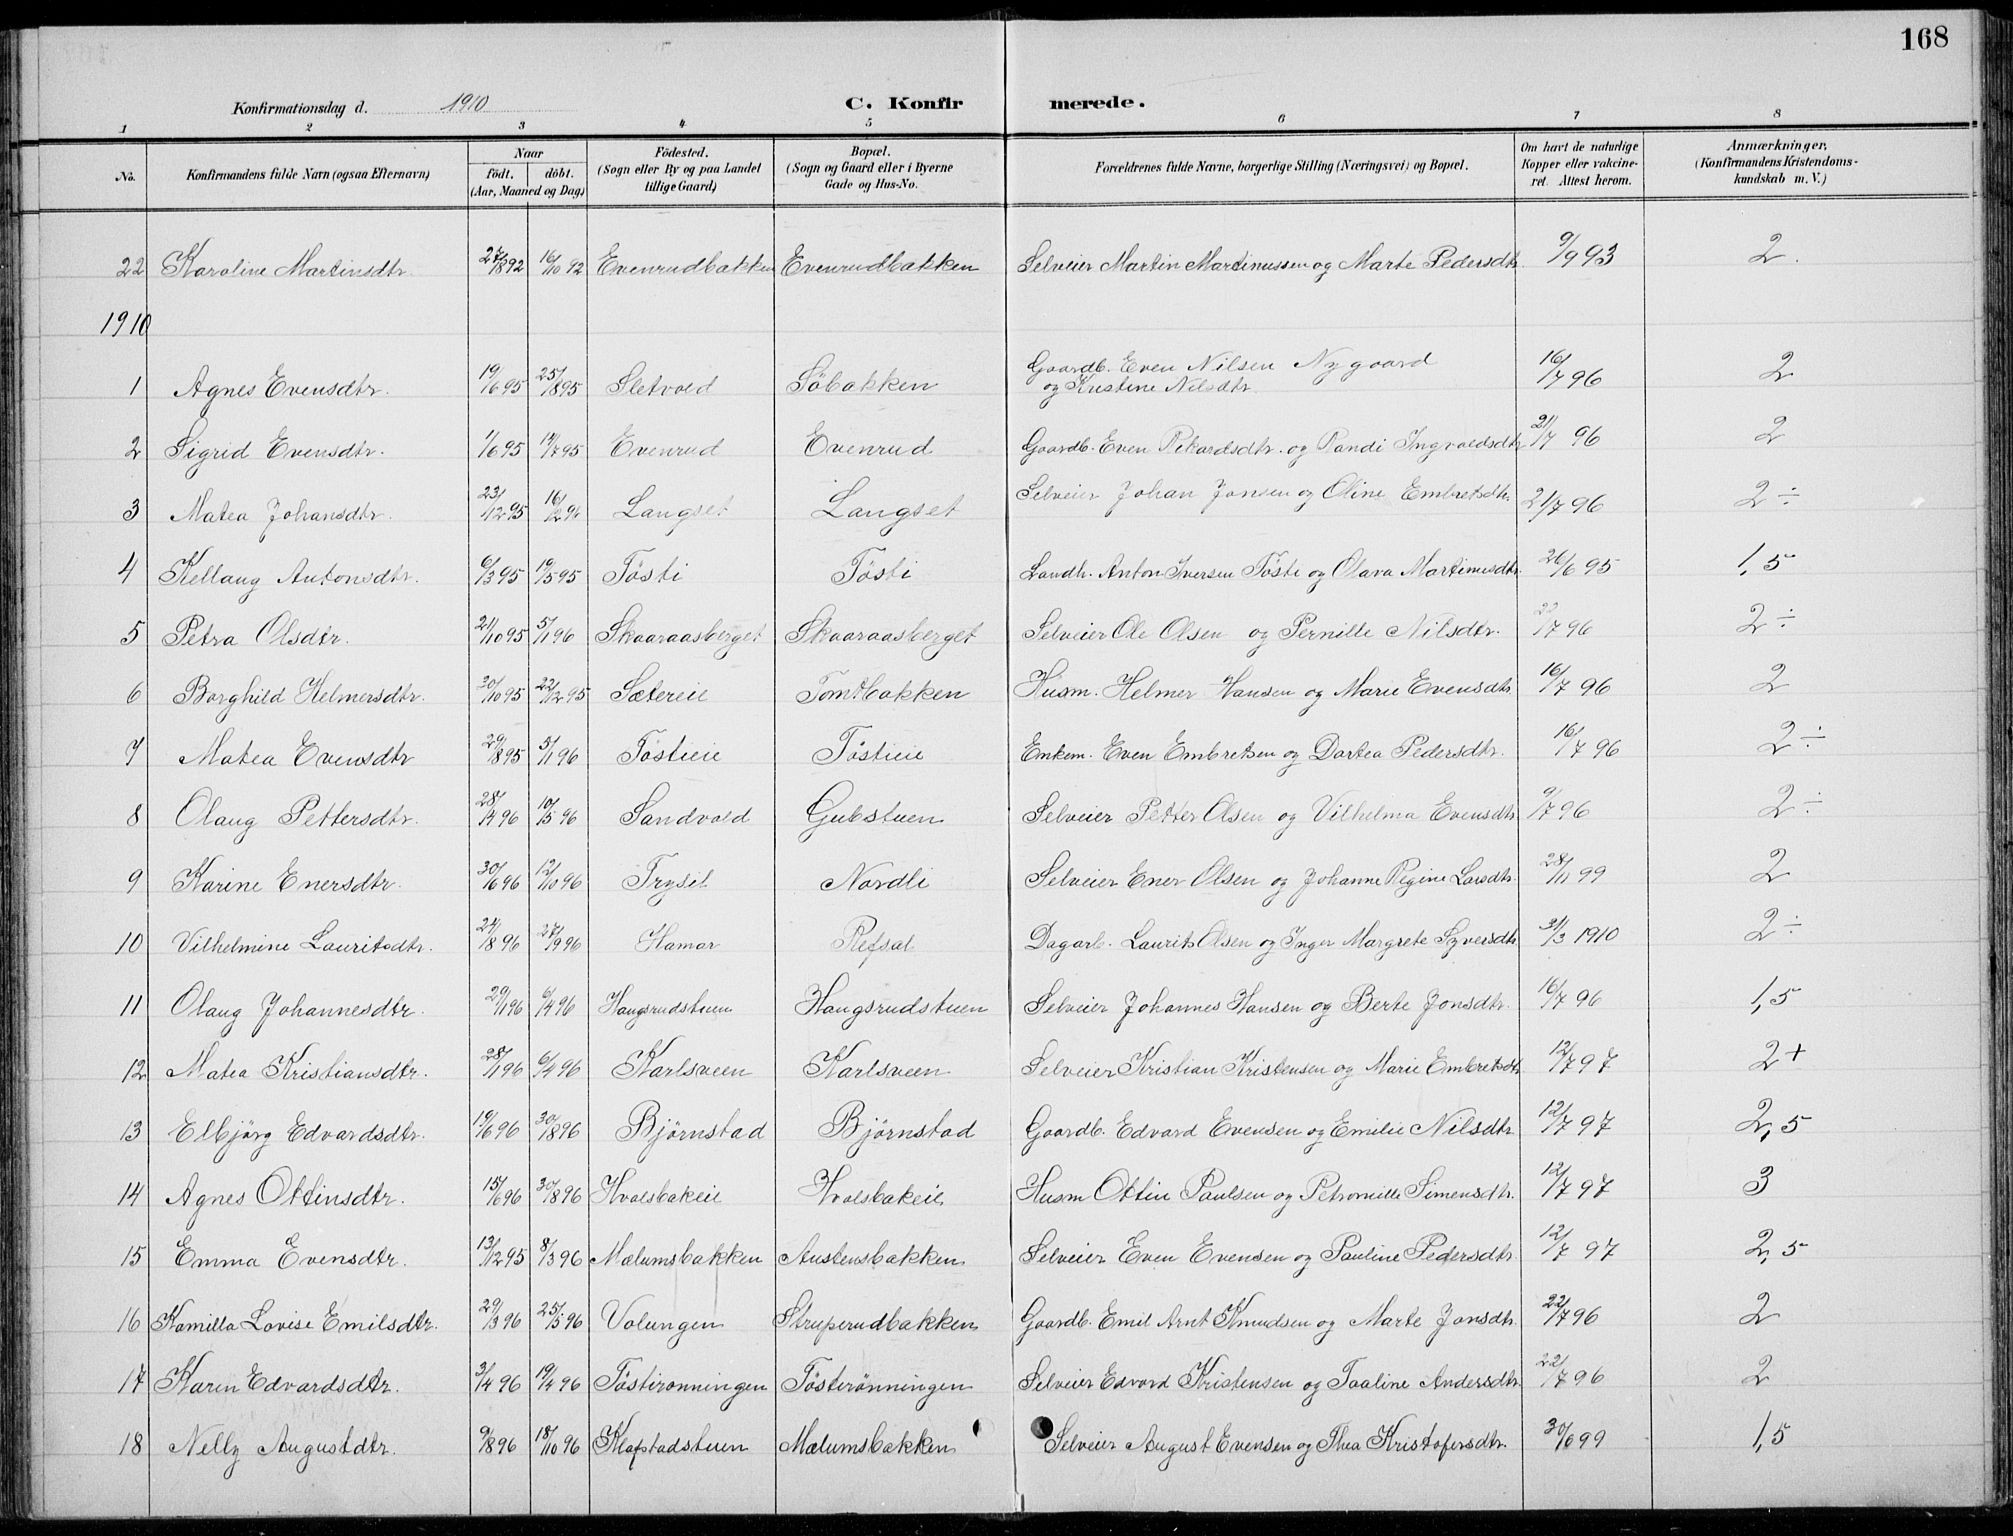 168
Konfirmationsdag d. 1910 C. Konfirmerede.
1 2 3 4 5 6 7 8
No. Konfirmandens fulde Navn (ogsaa Efternavn) Naar født. døbt. (Aar, Maaned og Dag) Fødested. (Sogn eller By og paa Landet tillige Gaard) Bopæl. (Sogn og Gaard eller i Byerne Gade og Hus-No. Forældrenes fulde Navne, borgerlige Stilling (Næringsvei) og Bopæl. Om havt de naturlige Kopper eller vakcineret. Attest herom. Anmærkninger, (Konfirmandens Kristendomskundskab m. V.)
22 Karoline Martinsdtr. 27/8 92 16/10 92 Evenrudbakken Evenrudbakken Selveier Martin Martinussen og Marte Pedersdtr. 9/9 93 2.
1910
1 Agnes Evensdtr. 19/6 95 25/8 95 Sletvold Söbakken Gaardb. Even Nilsen Nygaard og Kristine Nilsdtr. 16/7 96 2
2 Sigrid Evensdtr. 1/6 95 14/7 95 Evenrud Evenrud Gaardb. Even Rikardsdtr. og Randi Ingvaldsdtr 21/7 96 2
3 Matea Johansdtr. 23/12 95 16/2 96 Langset Langset Selveier Johan Jonsen og Oline Embretsdtr. 21/7 96 2 ÷
4 Kellaug Antonsdtr. 6/3 95 19/5 95 Tösti Tösti Landh. Anton Iversen Töste og Olava Martinusdtr. 26/6 95 1,5
5 Petra Olsdtr. 21/10 95 5/1 96 Skaaraasberget Skaaraasberget Selveier Ole Olsen og Pernille Nilsdtr. 22/7 96 2 ÷
6 Borghild Helmersdtr. 30/10 95 22/12 95 Sætereie Tomtbakken Husm. Helmer Hansen og Marie Evensdtr 16/7 96 2
7 Matea Evensdtr 29/8 95 5/1 96 Töstieie Töstieie Enkem. Even Embretsen og Dortea Pedersdtr. 16/7 96 2 ÷
8 Olaug Pettersdtr. 28/4 96 10/5 96 Sandvold Gubstuen Selveier Petter Olsen og Vilhelma Evensdtr 9/7 96 2 ÷
9 Karine Enersdtr. 30/6 96 12/10 96 Trysil Nordli Selveier Ener Olsen og Johanne Regine Larsdtr. 28/11 99 2
10 Vilhelmine Lauritsdtr. 24/8 96 27/9 96 Hamar Refsal Dagarb. Laurits Olsen og Inger Margrete Syversdtr 31/3 1910 2 ÷
11 Olaug Johannesdtr. 29/1 96 6/4 96 Haugsrudstuen Haugsrudstuen Selveier Johannes Hansen og Berte Jonsdtr. 16/7 96 1,5
12 Matea Kristiansdtr. 28/1 96 6/4 96 Karlsveen Karlsveen Selveier Kristian Kristensen og Marie Embretsdtr 12/7 97 2+
13 Elbjörg Edvardsdtr. 19/6 96 30/8 96 Björnstad Björnstad Gaardb. Edvard Evensen og Emilie Nilsdtr 12/7 97 2,5
14 Agnes Ottinsdtr. 15/6 96 30/8 96 Hvalsbakeie Hvalsbakeie Husm Ottin Paulsen og Petronille Simensdtr. 12/7 97 3
15 Emma Evensdtr. 13/12 95 8/3 96 Mælumsbakken Austensbakken Selveier Even Evensen og Pauline Pedersdtr. 12/7 97 2,5
16 Kamilla Lovise Emilsdtr. 29/3 96 25/5 96 Volungen Struperudbakken Gaardb. Emil Arnt Knudsen og Marte Jonsdtr. 22/7 96 2
17 Karen Edvardsdtr. 3/4 96 19/4 96 Töstirönningen Töstirönningen Selveier Edvard Kristensen og Taaline Andersdtr. 22/7 96 2
18 Nelly Augustdtr. 9/8 96 18/10 96 Klafstadstuen Mælumsbakken Selveier August Evensen og Thea Kristofersdtr. 30/6 99 1,5